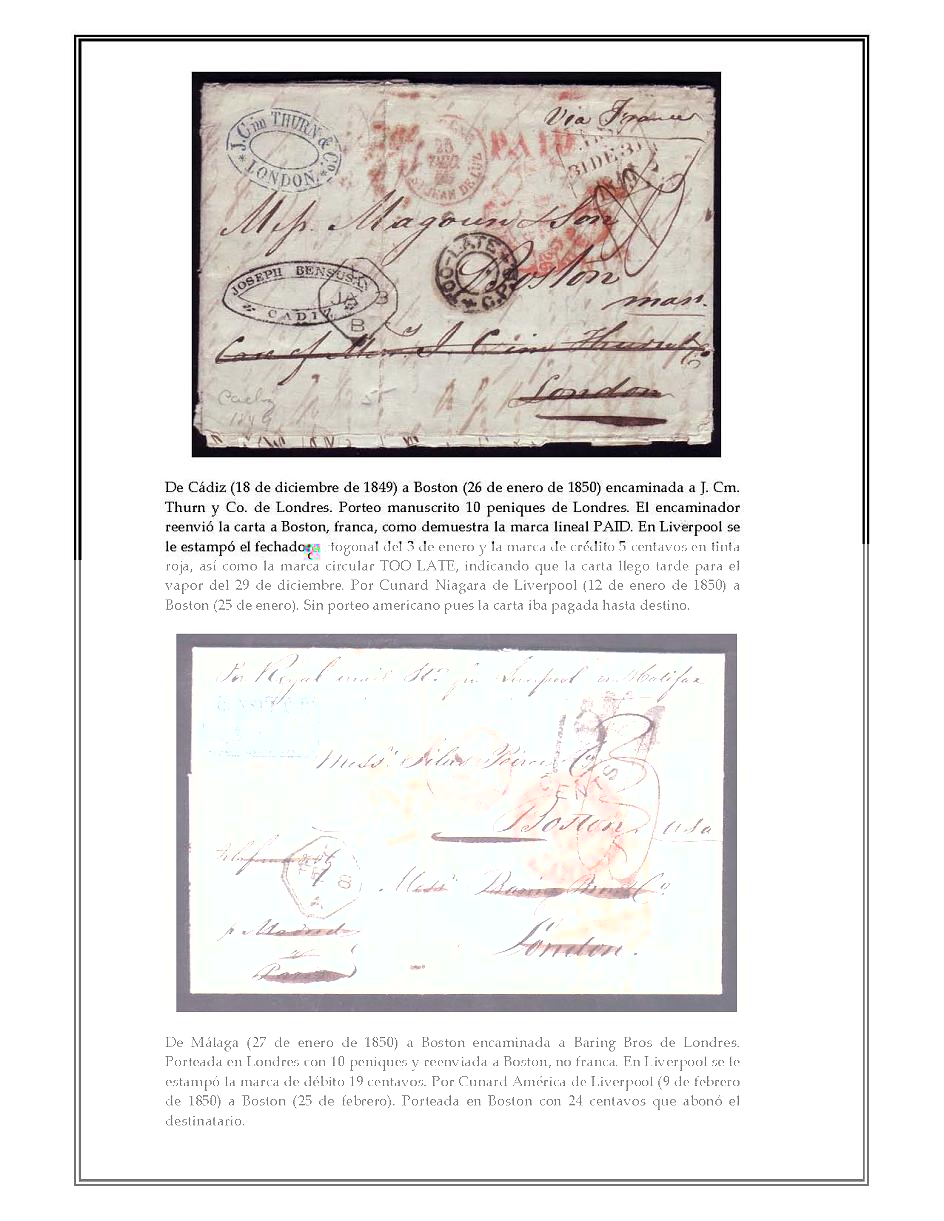 Via France
J. Cim THURN & Co.
* LONDON. *
PAID
31 DE 31
ST JEAN DE LUZ
Mess. Magoun & Son
TOO-LATE
Boston
mass.
JOSEPH BENSUSAN
CADIZ
B
London
Cadiz
1849
De Cádiz (18 de diciembre de 1849) a Boston (26 de enero de 1850) encaminada a J. Cm.
Thurn y Co. de Londres. Porteo manuscrito 10 peniques de Londres. El encaminador
reenvió la carta a Boston, franca, como demuestra la marca lineal PAID. En Liverpool se
le estampó el fechado togonal del 3 de enero y la marca de crédito 5 centavos en tinta
roja, así como la marca circular TOO LATE, indicando que la carta llego tarde para el
vapor del 29 de diciembre. Por Cunard Niagara de Liverpool (12 de enero de 1850) a
Boston (25 de enero). Sin porteo americano pues la carta iba pagada hasta destino.
Royal mail Liverpool Halifax
Mess. Silas Peirce & Co
CENTS
Boston usa
FE 8
Mess. Baring Bros & Co
p. Madrid
London.
De Málaga (27 de enero de 1850) a Boston encaminada a Baring Bros de Londres.
Porteada en Londres con 10 peniques y reenviada a Boston, no franca. En Liverpool se le
estampó la marca de débito 19 centavos. Por Cunard América de Liverpool (9 de febrero
de 1850) a Boston (25 de febrero). Porteada en Boston con 24 centavos que abonó el
destinatario.